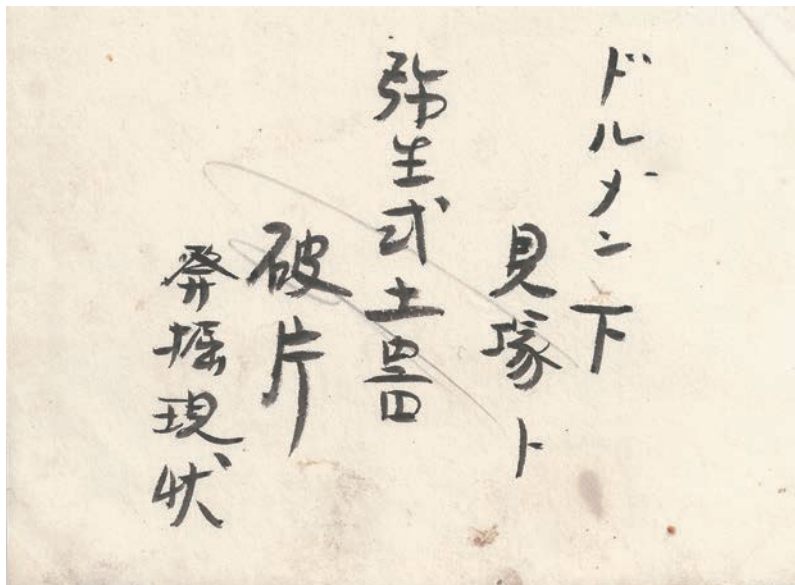 ドルメン下
見塚ト
弥生式土器
破片
発掘現状